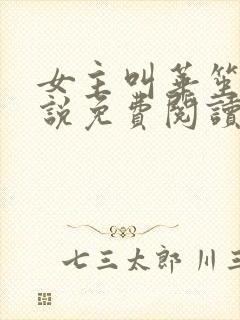 女主叫華笙
說免費閱讀
七三太郎 川三